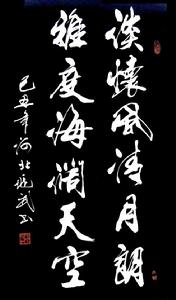 淡懷風清月朗
雅度海闊天空
己丑年河北武书